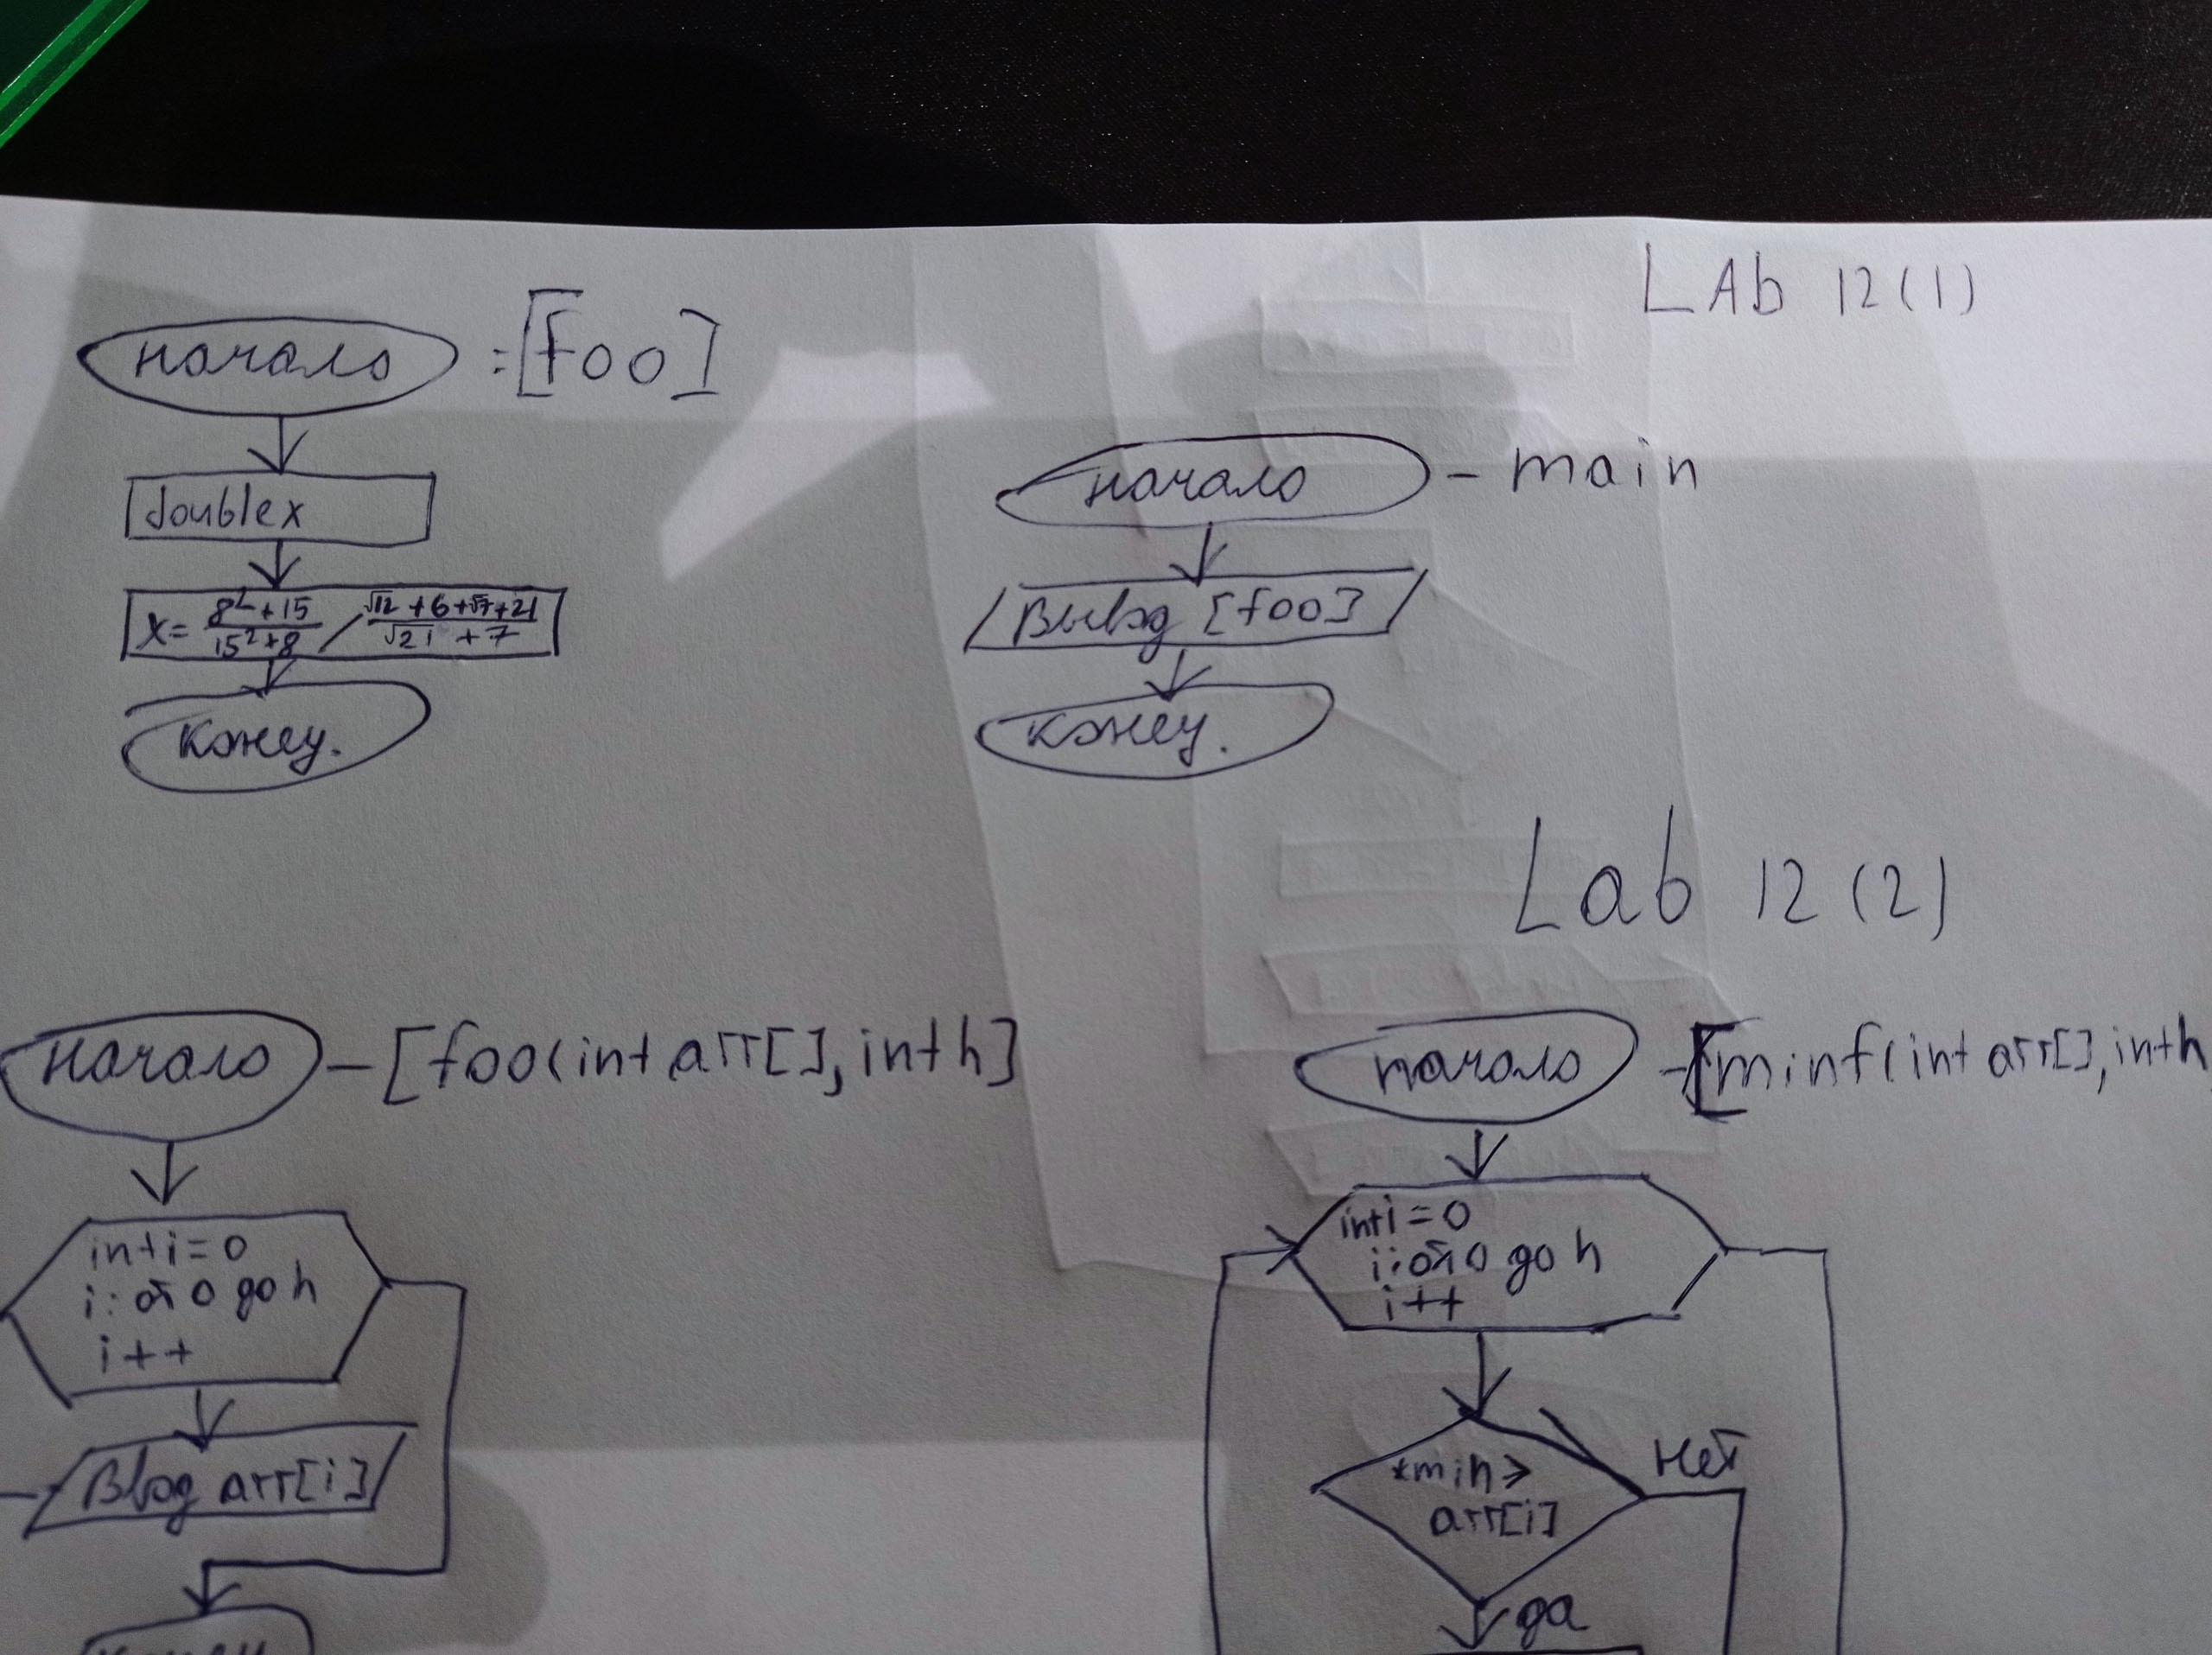 LAb 12(1)
начало :[foo]
double x
x= 8²+15 / 15²+8 / √12 +6+√7+21 / √21 +7
конец.
начало - main
Вывод [foo]
конец.
Lab 12(2)
начало - [foo(int arr[], int h]
int i=0
i: от 0 до h
i++
Ввод arr[i]
конец
начало - [minf(int arr[], int h
int i=0
i: от 0 до h
i++
*min>
arr[i]
нет
да